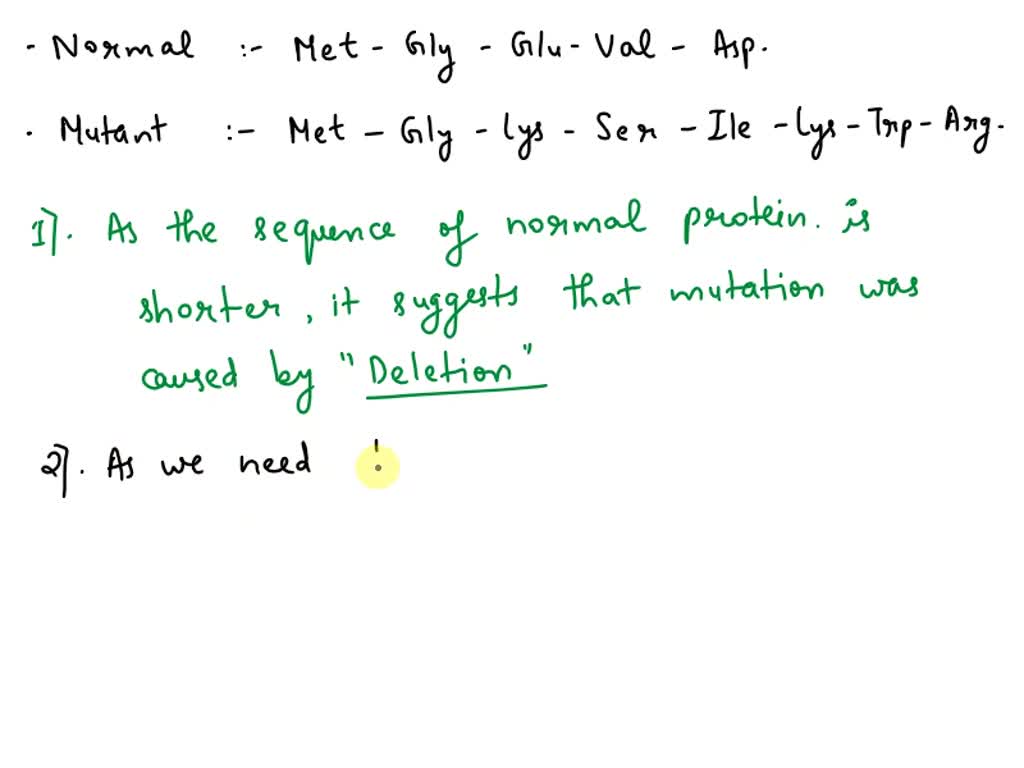 · Normal :- Met - Gly - Glu - Val - Asp.
· Mutant :- Met - Gly - Lys - Ser - Ile - Lys - Trp - Arg.
1]. As the sequence of normal protein. is
shorter, it suggests that mutation was
caused by "Deletion"
2]. As we need